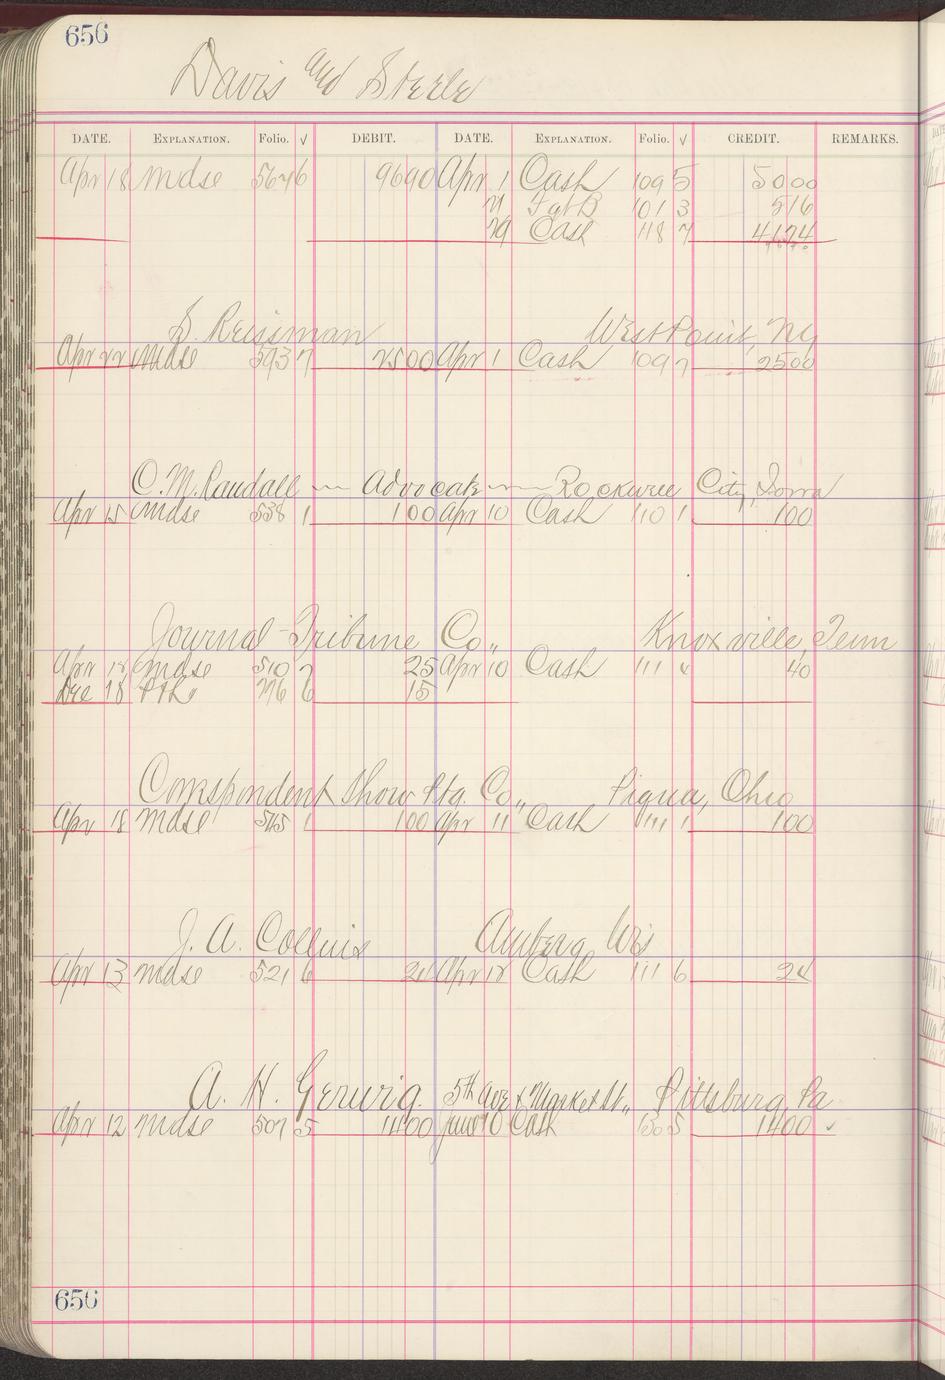 656
Davis and Steele
DATE. EXPLANATION. Folio. √ DEBIT. DATE. EXPLANATION. Folio. √ CREDIT. REMARKS.
Apr 18 mdse 564 6 9690 Apr 1 Cash 109 5 5000
21 101 3 516
29 Cash 118 7 4174
S. Reissman West Point, Ny
Apr 22 mdse 593 7 2500 Apr 1 Cash 109 7 2500
C. M. Randall — Advocate — Rockwell City, Iowa
Apr 15 mdse 538 1 100 Apr 10 Cash 110 1 100
Journal-Tribune Co,, Knoxville, Tenn
Apr 12 mdse 510 7 25 Apr 10 Cash 111 40
Dec 18 776 6 15
Correspondent Show Ptg. Co,, Piqua, Ohio
Apr 18 mdse 565 1 100 Apr 11 Cash 111 1 100
J. A. Collins Amberg Wis
Apr 13 mdse 521 6 24 Apr 12 Cash 111 6 24
A. H. Gerwig. 5th Ave & Market St,, Pittsburg, Pa
Apr 12 mdse 507 5 1400 June 10 Cash 130 5 1400 ✓
656